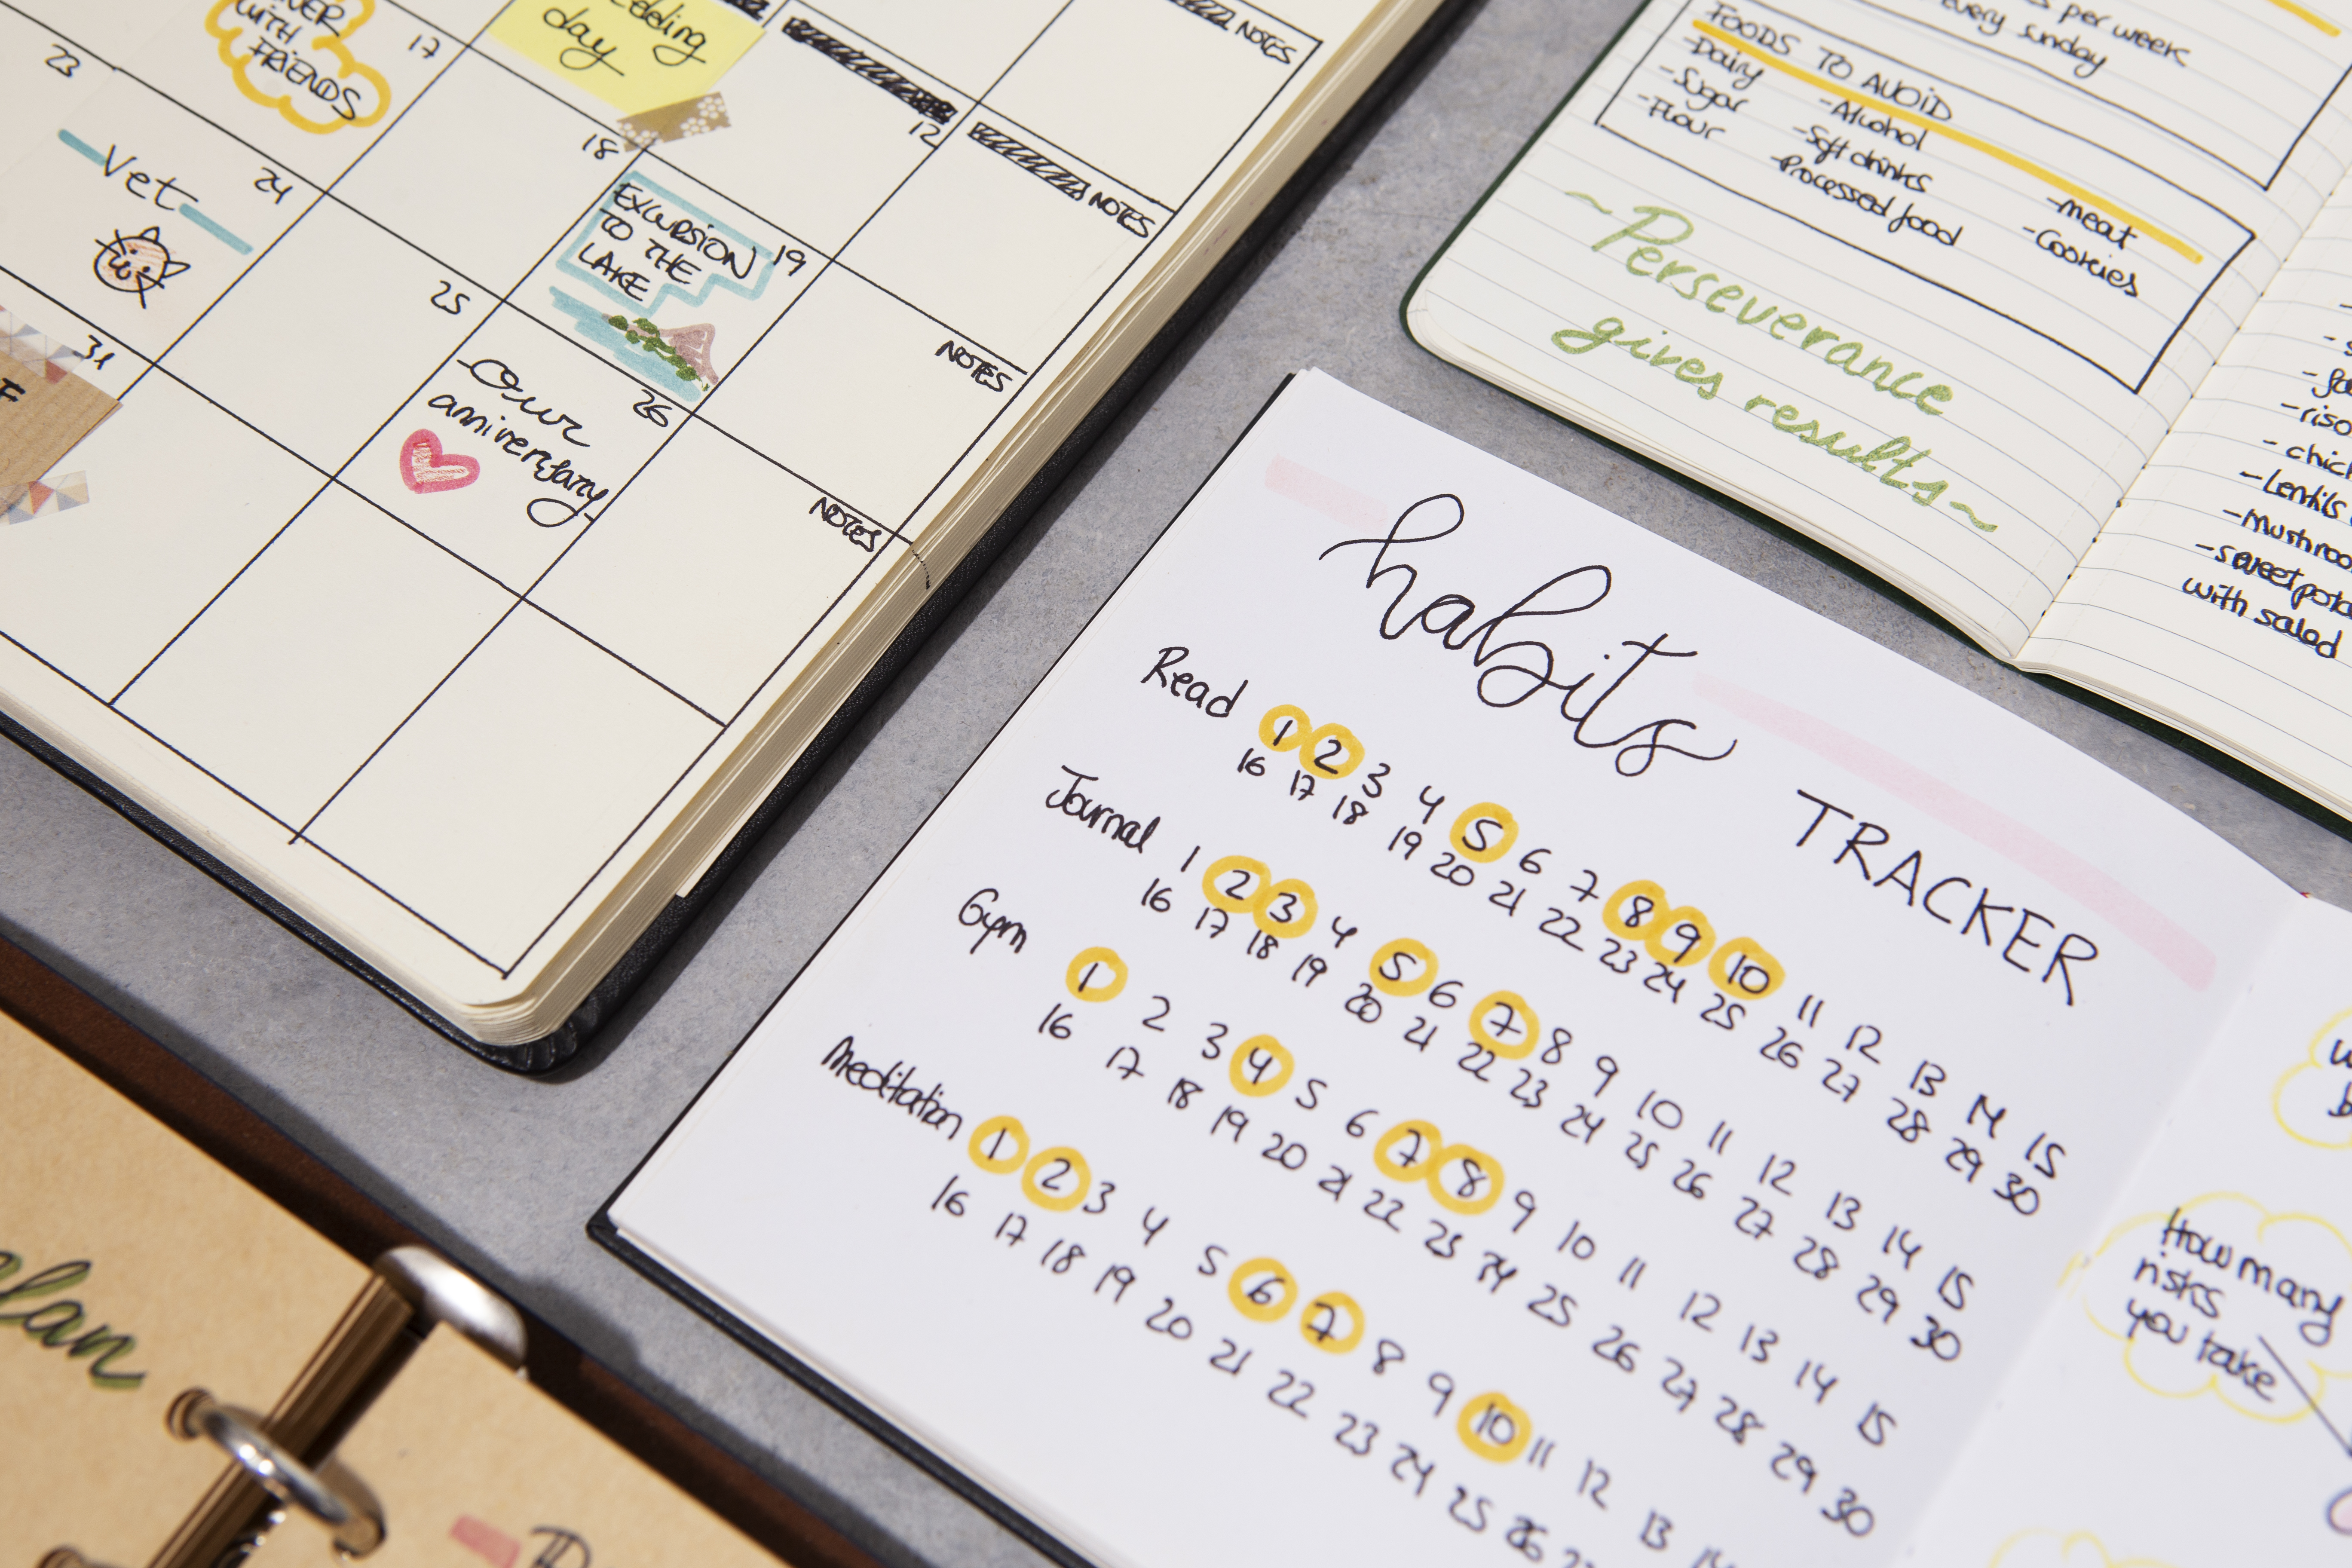 WITH
FRIENDS
17
day
NOTES
23
Vet
24
18
12
NOTES
EXCURSION
TO THE
LAKE
19
NOTES
31
25
Our
anniversary
26
NOTES
per week
every sunday
FOODS TO AVOID
-Dairy
-Sugar
-Flour
-Alcohol
-Soft drinks
-Processed food
-meat
-Cookies
~Perseverance
gives results~
-lentils
with salad
habits
TRACKER
Read 1 2 3 4 5 6 7 8 9 10 11 12 13 14 15
16 17 18 19 20 21 22 23 24 25 26 27 28 29 30
Journal 1 2 3 4 5 6 7 8 9 10 11 12 13 14 15
16 17 18 19 20 21 22 23 24 25 26 27 28 29 30
Gym 1 2 3 4 5 6 7 8 9 10 11 12 13 14 15
16 17 18 19 20 21 22 23 24 25 26 27 28 29 30
Meditation 1 2 3 4 5 6 7 8 9 10 11 12 13 14
16 17 18 19 20 21 22 23 24 25 26
How many
risks
you take
plan